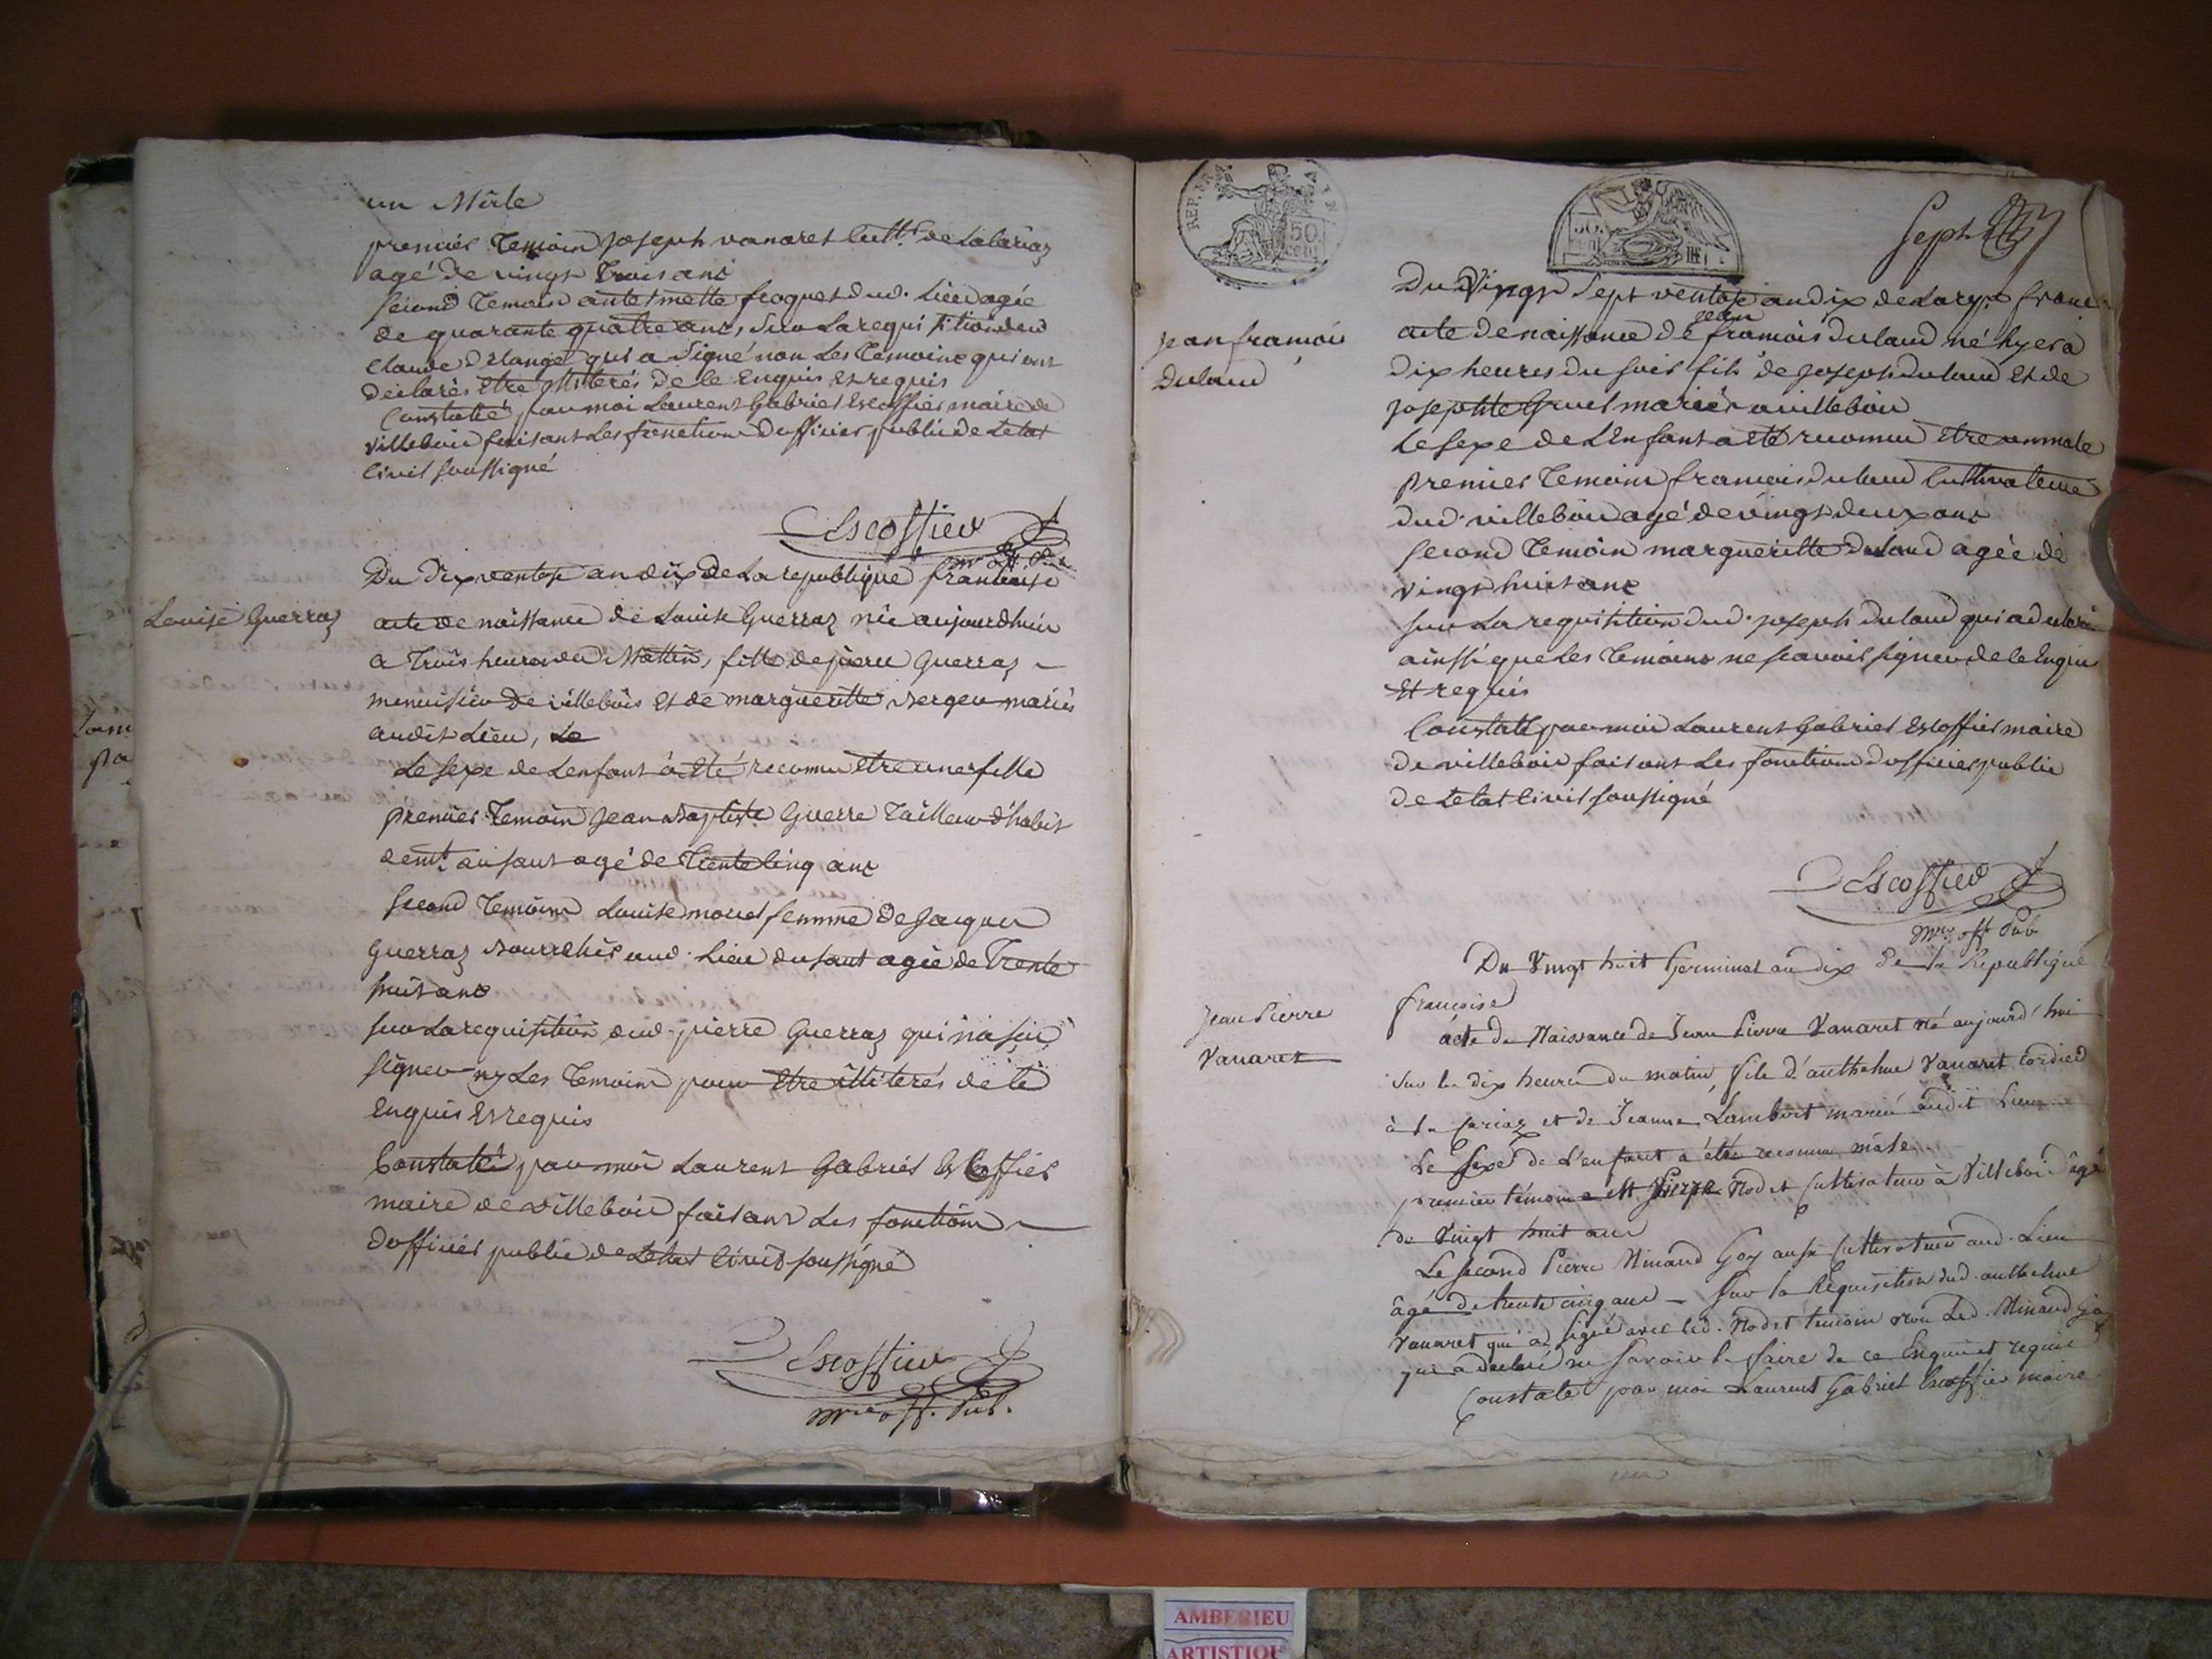 un Mâle
premier Temoin Joseph vanaret cultr. de Lalariaz
agé de vingt Trois ans
second Temoin antelmette froquet dud. Lieu agée
de quarante quatre ans, sur La requisition dud
Claude Delange qui a signé non Les Temoins qui ont
déclarés être illiterés de ce Enquis et requis
Constatté par moi Laurent Gabriel Escoffier maire de
villebois faisant Les fonctions d'officier public de Letat
Civil soussigné
Escoffier
mre off. Pub.
Louise Guerraz
Du dix ventose an dix de La republique francaise
acte de naissance de Louise Guerraz née aujourdhuir
a Trois heures du Mattin, fille de pierre Guerraz
menuisier de villebois et de margueritte Berger mariés
audit Lieu, Le
Le sexe de Lenfant à eté reconnu etre une fille
premier Temoin Jean Baptiste Guerre Tailleur d'habit
demt. au saut agé de Trente Cinq ans
second Temoin Louise moret femme de Jacques
Guerraz Bourrelier aud. Lieu du saut agée de Trente
huit ans
sur La requisition dud. pierre Guerraz qui na sçu
signer ny Les Temoins pour etre illiterés de ce
Enquis et requis
Constatté par moi Laurent Gabriel Escoffier
maire de villebois faisant Les fonctions
dofficier public de Letat Civil soussigné
Escoffier
mre off. Pub.
REP. FRA
50
cent
50
cent
Sept
Jean francois
Dulaud
Du Vingt Sept ventose an dix de La rep. franc
acte de naissance de jean francois dulaud né hyer a
dix heures du soir fils de Joseph dulaud et de
Josephte Gruel mariés a villebois
Le sexe de L'Enfant a eté reconnu etre un male
premier Temoin francois dulaud Cultivateur
dud. villebois agé de vingt deux ans
second Temoin margueritte dulaud agée de
vingt huit ans
sur La requisition dud. joseph dulaud qui a declaré
ainssi que Les Temoins ne scavoir signer de ce Enquis
et requis
Constatté par moi Laurent Gabriel Escoffier maire
de villebois faisant Les fonctions d'officier public
de Letat Civil soussigné
Escoffier
mre off Pub
Jean Pierre
Vanaret
Du Vingt huit Germinal an dix de la Republique
francoise
acte de Naissance de Jean Pierre Vanaret né aujourd'hui
sur les dix heures du matin, fils d'anthelme Vanaret Cordier
à la Cariaz et de Jeanne Lambert mariés audit Lieu
Le Sexe de L'enfant a été reconnu mâle
premier témoin est Pierre Nodet Cultivateur à Villebois âgé
de Vingt huit ans
Le second Pierre Minand Goy aussi Cultivateur aud. Lieu
âgé de trente cinq ans — sur la Requisition dud. anthelme
Vanaret qui a signé avec led. Nodet témoin non Led. Minand Goy
qui a declaré ne savoir le faire de ce Enquis et requis
Constaté par moi Laurent Gabriel Escoffier maire
AMBERIEU
ARTISTIQU